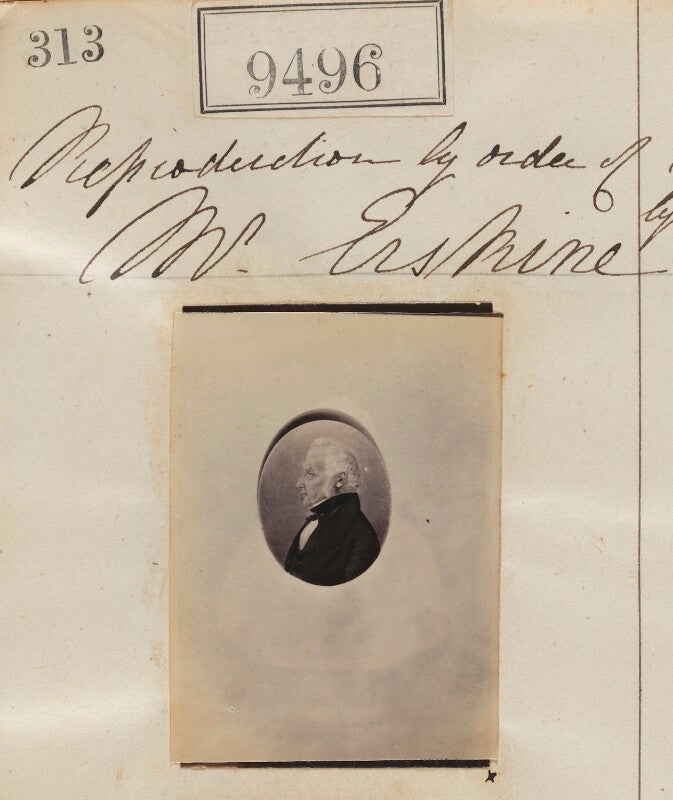 313
9496
Reproduction by order of
Mr. Erskine
by